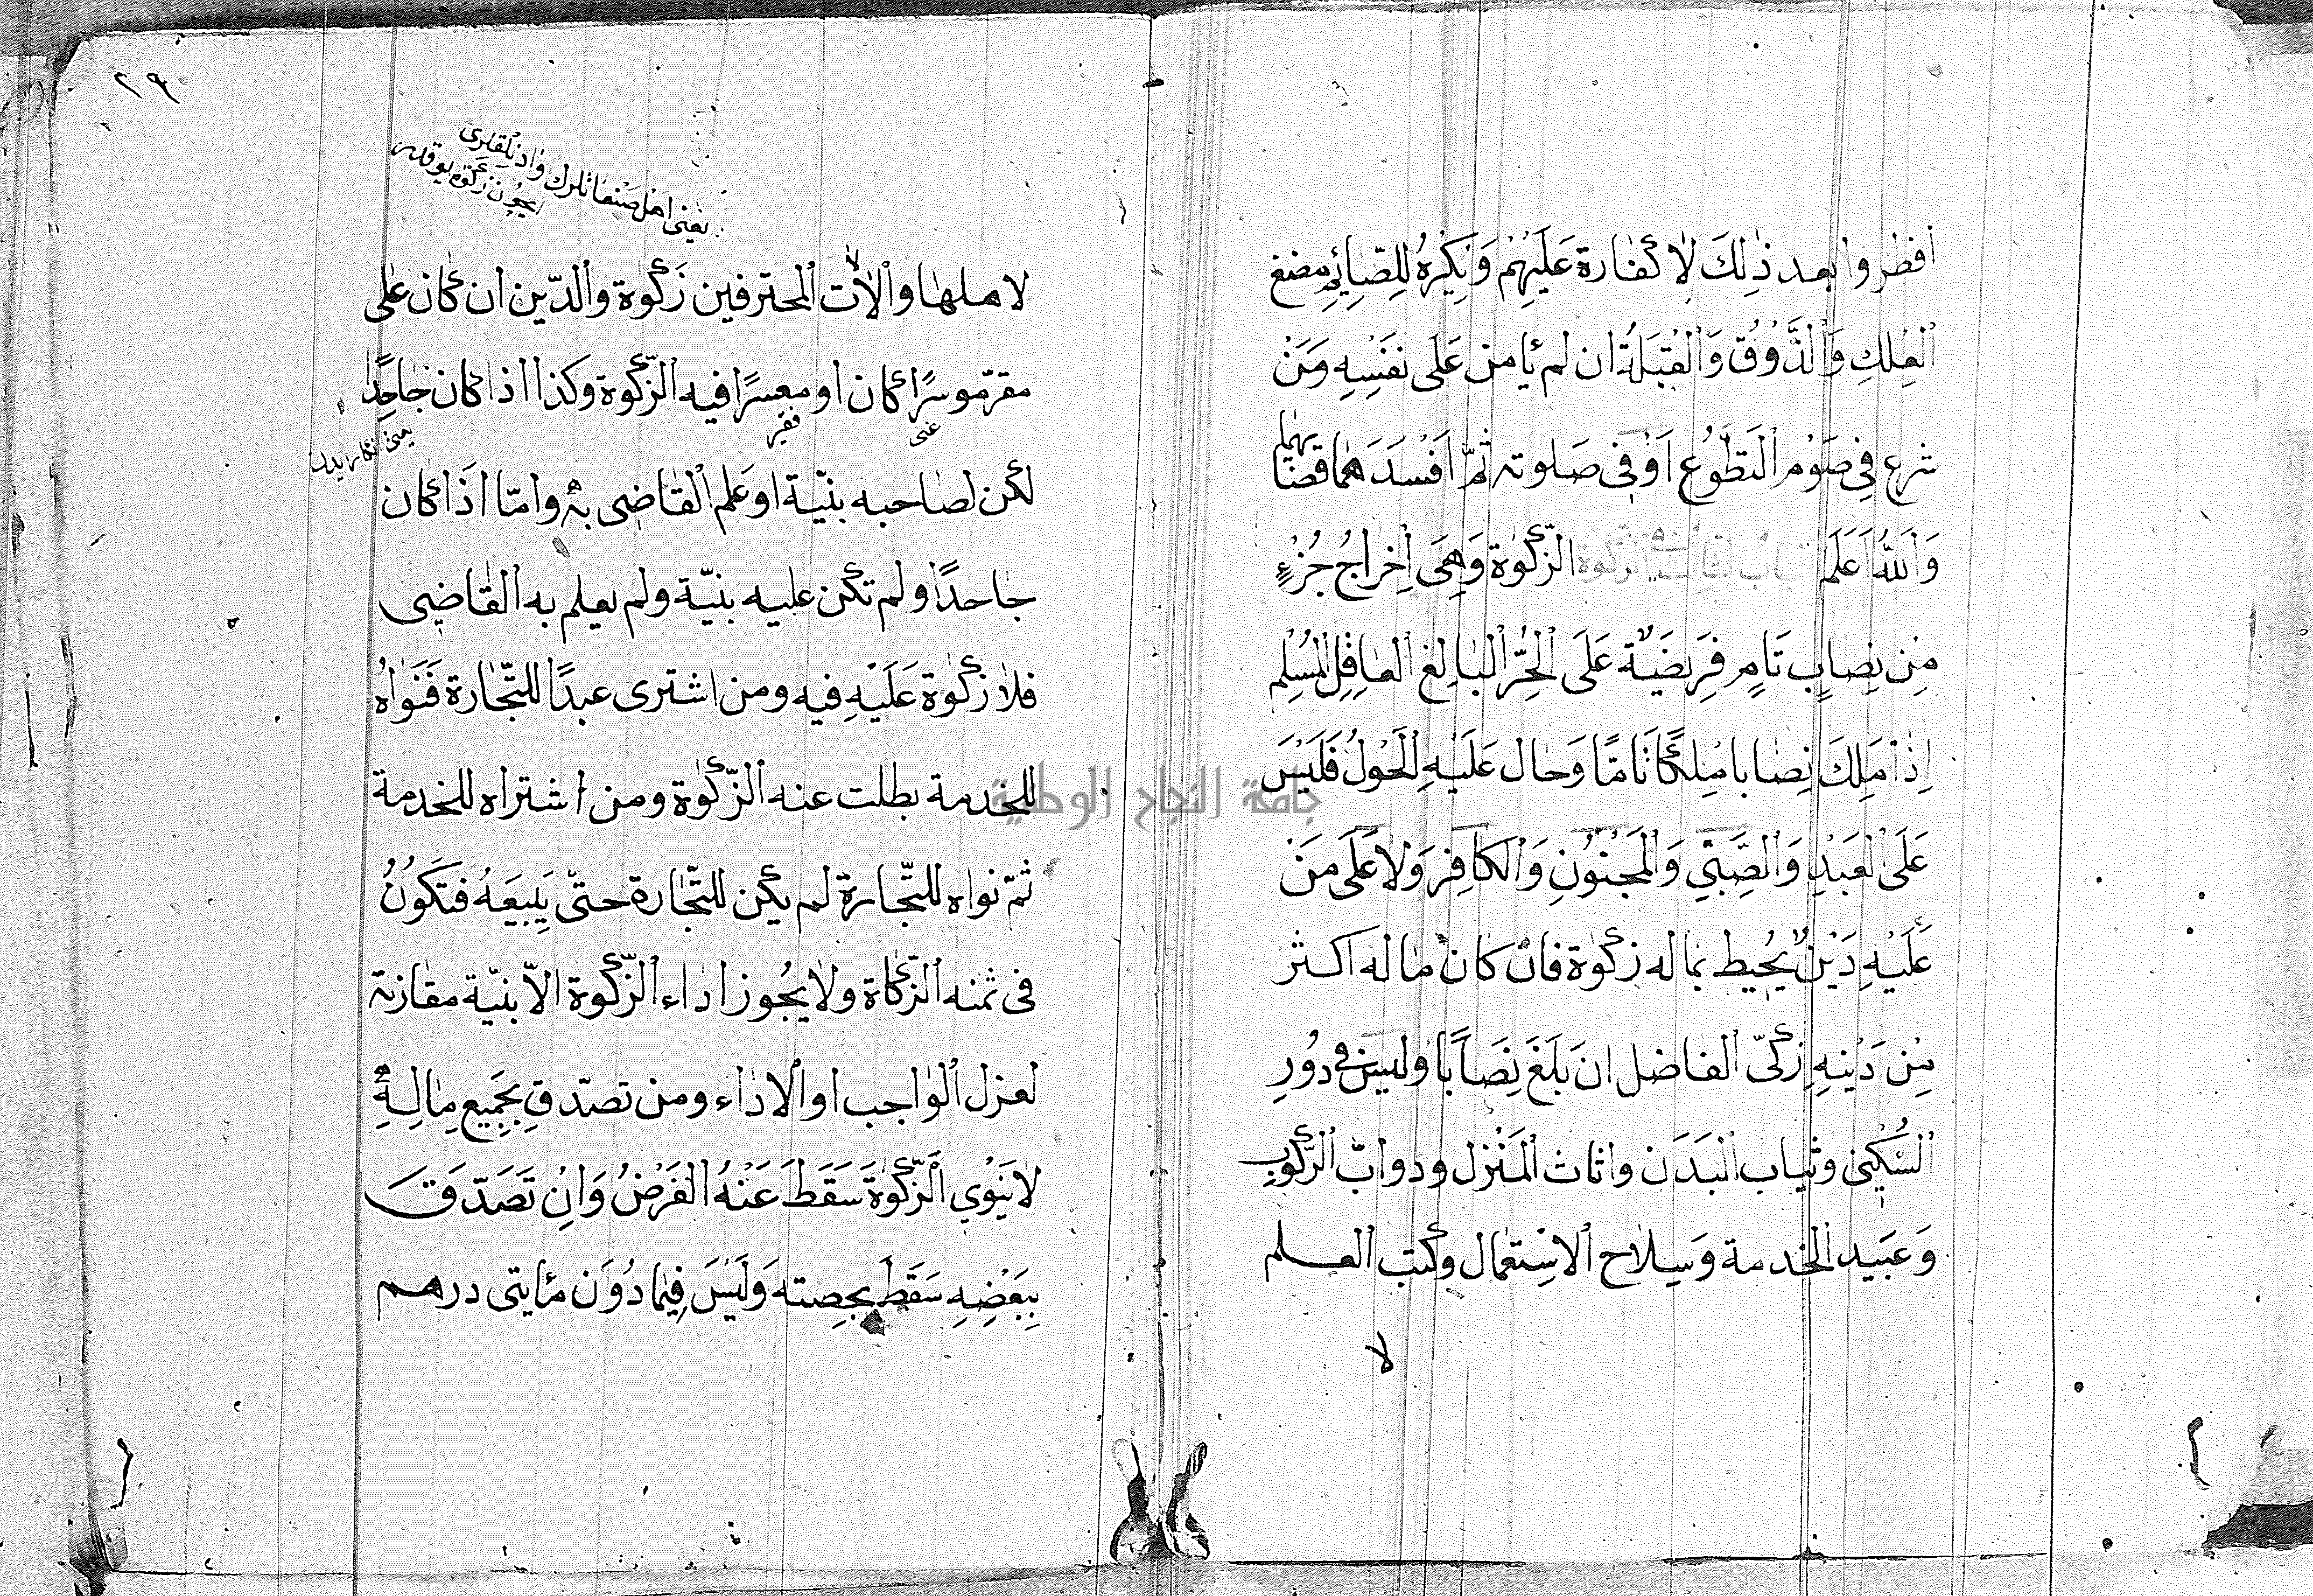 افطروا بعد ذٰلِكَ لا كفارة عَلَيْهِمْ وَيَكْرَهُ لِلصّائِمِ مضغ
العِلكِ وَالذَّوْقُ وَالْقُبْلَةُ ان لم يأمن عَلَى نَفْسِهِ وَمَنْ
شرع فِي صَوْمِ التَطَوُّعِ اَوْ فِي صَلوته ثُمّ اَفْسَدَهما قضا
يهما
وَاَللهُ اَعْلَمَ الزّكوة وَهِىَ اِخراجُ جُزْءٍ
مِن نِصابٍ تَامٍ فَرِيضَيّة عَلَى الْحُرِّ البَالِغِ العاقِلِ المُسْلِمِ
اِذٰا مَلِكَ نِصٰابا مِلكًا تَامًّا وَحٰال عَلَيْهِ الْحَوْلُ فَلَيْسَ
عَلَى العَبْدِ وَالصَّبِيِّ وَالمَجْنُونِ وَالكافِر وَلا عَلَى مَنْ
عَلَيْهِ دَيْنٌ يُحيط بماله زكوة فان كان مٰاله اكثر
مِن دَيْنِهِ زكىّ الفاضل ان بَلَغَ نِصَابًا وليس فى دُورِ
السُّكْنى وثياب البَدَن واثاث المَنْزل ودوابّ الرّكوب
وَعَبيد الخدمة وَسِلاح الاسْتِعْمال وكتب العلم
لا
٢٩
يعنى اهل صنعاتلرك وادنلقلرى
ايچون زكوة يوقدر
لاهلها والات المحترفين زَكوة والدّين ان كان على
مقرّ موسرًا كان او معسرًا فيه الزّكوة وكذا اذا كان جَاحِدًا
غنى
فقير
يعنى انكار ايدن
لكن لصاحبه بنيّة او علم القٰاضى به وامّا اذا كان
جاحدًا ولم تكن عليه بنيّة ولم يعلم به القٰاضى
فلا زكوٰة عَلَيْهِ فيه ومن اشترى عبدًا للتّجارة فَنَوٰاهُ
للخدمة بطلت عنه الزّكوٰة ومن اشتراه للخدمة
ثمّ نواه للتّجارة لم يكن للتّجارة حتّى يَبِيعَهُ فتَكُونُ
فى ثمنه الزّكاة ولا يجُوز اداء الزّكوة الاّ بنيّة مقارنة
لعزل الوٰاجب او الاداء ومن تصدّق بِجَمِيعِ مالِهِ
لا يَنْوي الزّكوٰةَ سَقَطَ عَنْهُ الفَرْضُ وَاِنْ تَصَدّقَ
بِبَعْضِهِ سَقَطَ بحِصته وَلَيْسَ فِيمٰا دُوْنَ مأيتى درهم
جامعة النجاح الوطنية